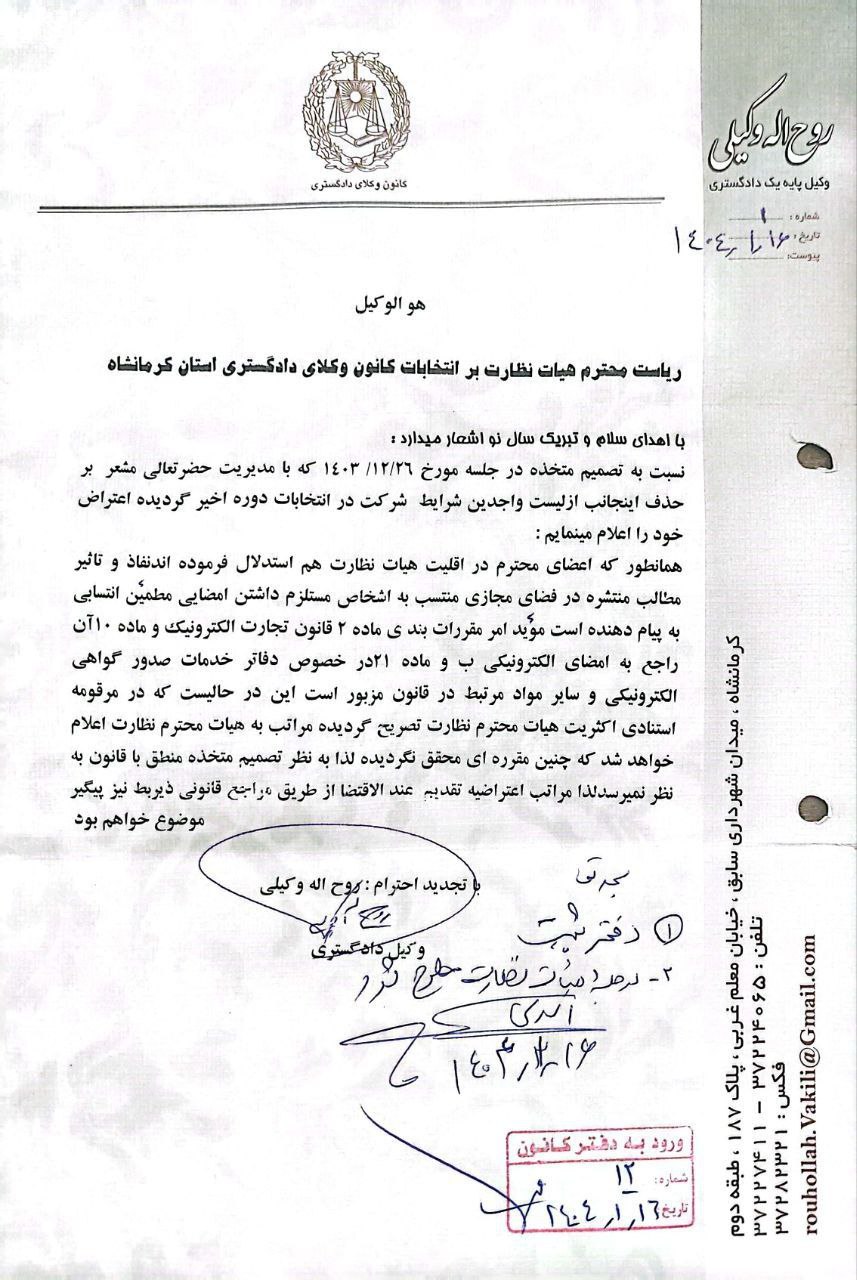 کانون وکلای دادگستری
روح اله وکیلی
وکیل پایه یک دادگستری
شماره: ۱
تاریخ: ۱۴۰۴٫۱٫۱۶
پیوست:
هو الوکیل
ریاست محترم هیات نظارت بر انتخابات کانون وکلای دادگستری استان کرمانشاه
با اهدای سلام و تبریک سال نو اشعار میدارد :
نسبت به تصمیم متخذه در جلسه مورخ ۱۴۰۳/۱۲/۲۶ که با مدیریت حضرتعالی مشعر بر
حذف اینجانب ازلیست واجدین شرایط شرکت در انتخابات دوره اخیر گردیده اعتراض
خود را اعلام مینمایم :
همانطور که اعضای محترم در اقلیت هیات نظارت هم استدلال فرموده اندنفاذ و تاثیر
مطالب منتشره در فضای مجازی منتسب به اشخاص مستلزم داشتن امضایی مطمئن انتسابی
به پیام دهنده است مؤید امر مقررات بند ی ماده ۲ قانون تجارت الکترونیک و ماده ۱۰آن
راجع به امضای الکترونیکی ب و ماده ۲۱در خصوص دفاتر خدمات صدور گواهی
الکترونیکی و سایر مواد مرتبط در قانون مزبور است این در حالیست که در مرقومه
استنادی اکثریت هیات محترم نظارت تصریح گردیده مراتب به هیات محترم نظارت اعلام
خواهد شد که چنین مقرره ای محقق نگردیده لذا به نظر تصمیم متخذه منطق با قانون به
نظر نمیرسدلذا مراتب اعتراضیه تقدیم عند الاقتضا از طریق مراجع قانونی ذیربط نیز پیگیر
موضوع خواهم بود
با تجدید احترام : روح اله وکیلی
وکیل دادگستری
۱ دفتر ثبت
۲- در جلسه هیأت نظارت مطرح شود
ورود به دفتر کانون
شماره: ۱۲
تاریخ: ۱۴۰۴٫۱٫۱۶
کرمانشاه ، میدان شهرداری سابق ، خیابان معلم غربی ، پلاک ۱۸۷ ، طبقه دوم
تلفن : ۳۷۲۲۴۰۶۵ – ۳۷۲۲۷۴۱۱
فکس : ۳۷۲۸۲۳۲۱
rouhollah.Vakili@Gmail.com